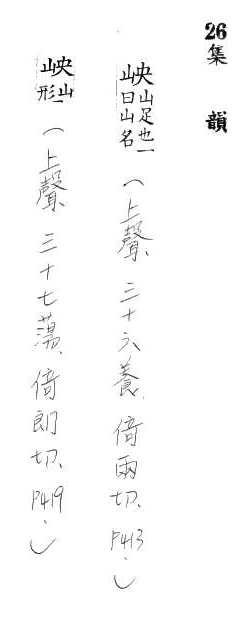 26集 韻
岟山足也一曰山名(上聲、三十六養、倚兩切、P413.)
岟山形(上聲、三十七蕩、倚朗切、P419.)